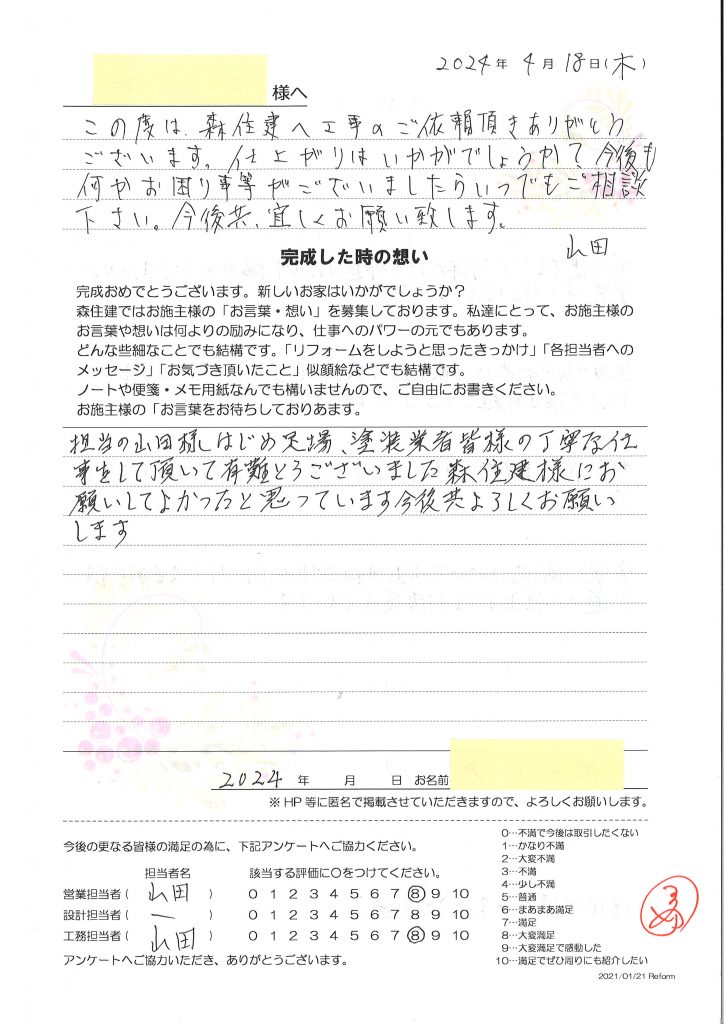 2024年 4月 18日(木)
様へ
この度は、森住建へ工事のご依頼頂きありがとう
ございます。仕上がりはいかがでしょうか？今後も
何かお困り事等がございましたらいつでもご相談
下さい。今後共、宜しくお願い致します。
山田
完成した時の想い
完成おめでとうございます。新しいお家はいかがでしょうか？
森住建ではお施主様の「お言葉・想い」を募集しております。私達にとって、お施主様の
お言葉や想いは何よりの励みになり、仕事へのパワーの元でもあります。
どんな些細なことでも結構です。「リフォームをしようと思ったきっかけ」「各担当者への
メッセージ」「お気づき頂いたこと」似顔絵などでも結構です。
ノートや便箋・メモ用紙なんでも構いませんので、ご自由にお書きください。
お施主様の「お言葉をお待ちしておりあます。
担当の山田様はじめ足場、塗装業者皆様の丁寧な仕
事をして頂いて有難とうございました森住建様にお
願いしてよかったと思っています今後共よろしくお願い
します
2024 年 月 日 お名前
※HP等に匿名で掲載させていただきますので、よろしくお願いします。
今後の更なる皆様の満足の為に、下記アンケートへご協力ください。
担当者名 該当する評価に○をつけてください。
営業担当者( 山田 ) 0 1 2 3 4 5 6 7 8 9 10
設計担当者( ー ) 0 1 2 3 4 5 6 7 8 9 10
工務担当者( 山田 ) 0 1 2 3 4 5 6 7 8 9 10
アンケートへご協力いただき、ありがとうございます。
0…不満で今後は取引したくない
1…かなり不満
2…大変不満
3…不満
4…少し不満
5…普通
6…まあまあ満足
7…満足
8…大変満足
9…大変満足で感動した
10…満足でぜひ周りにも紹介したい
2021/01/21 Reform